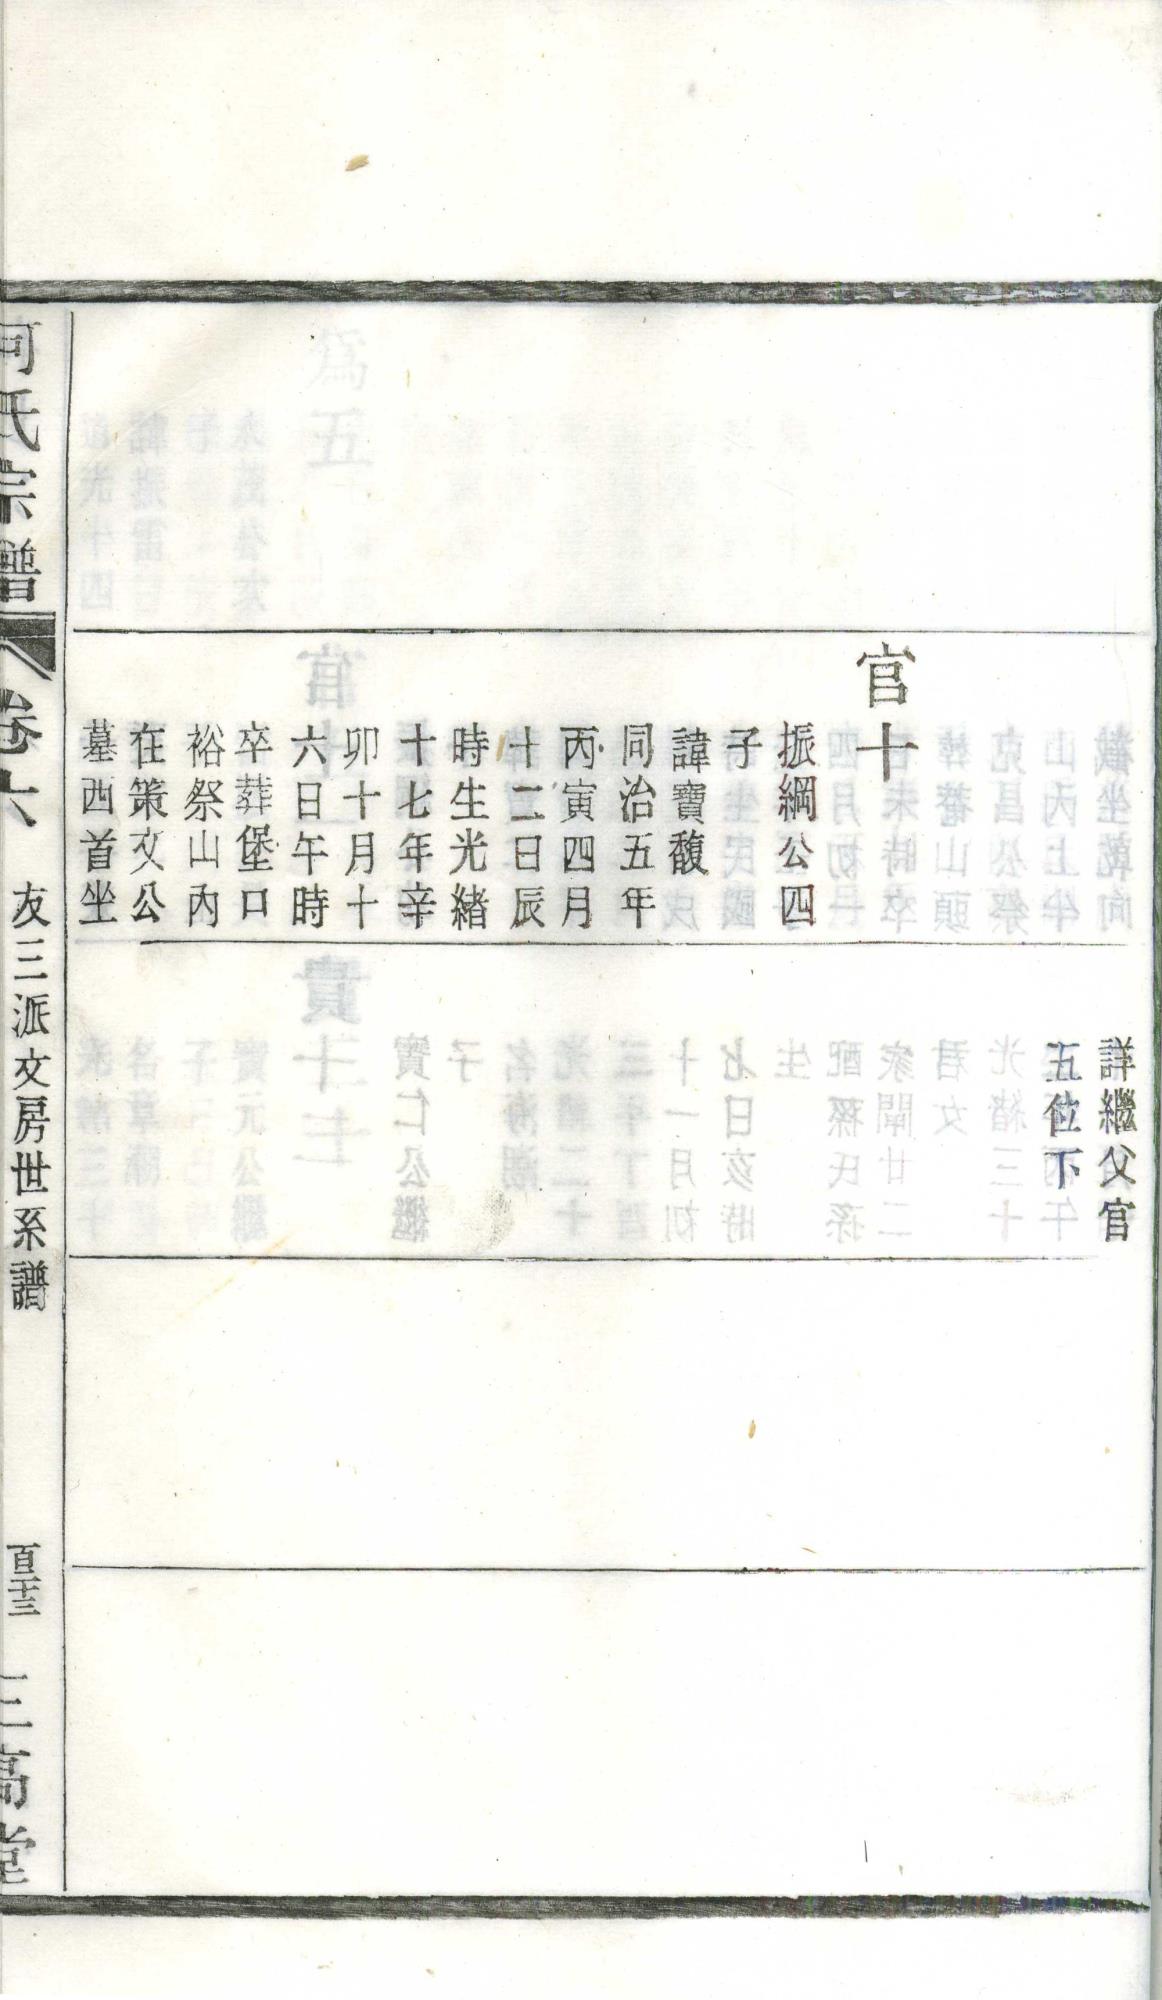 官十
振綱公四
子
諱寶馥
同治五年
丙寅四月
十二日辰
時生光緒
十七年辛
卯十月十
六日午時
卒葬堡口
裕祭山內
在策文公
墓西首坐
詳繼父官
五位下
何氏宗譜
卷六
友三派文房世系譜
百三十三
三高堂